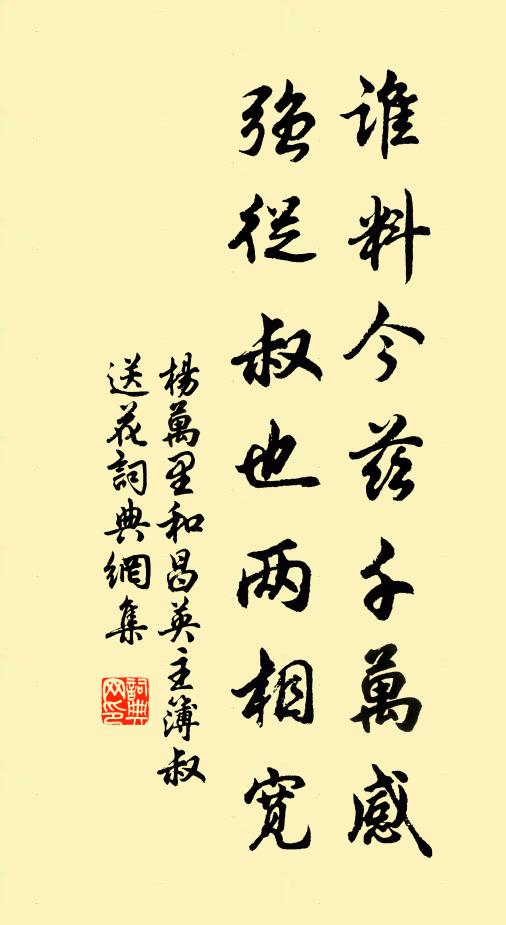 谁料今茲千萬感
強從叔也两相寛
楊萬里和昌英主簿叔
送花詞典網集
詞典
网印